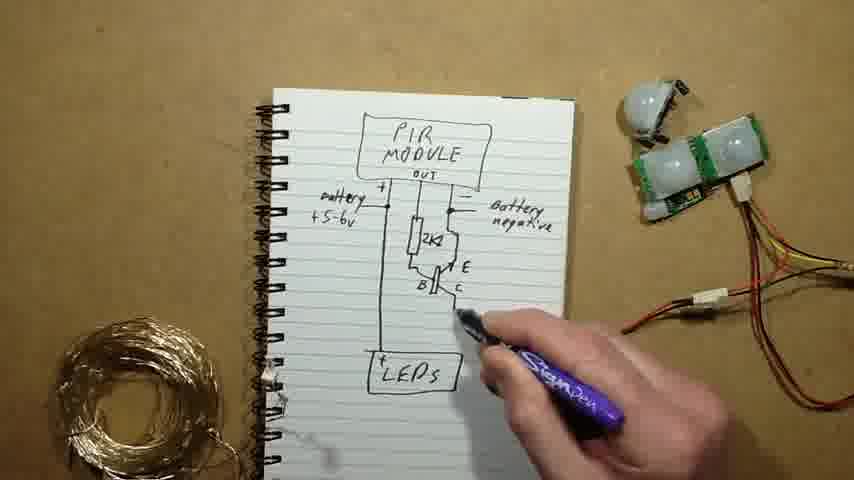 PIR
MODULE
OUT
+ −
Battery
+5-6v
Battery
negative
2K2
E
B C
+
LEDs
Sign Pen